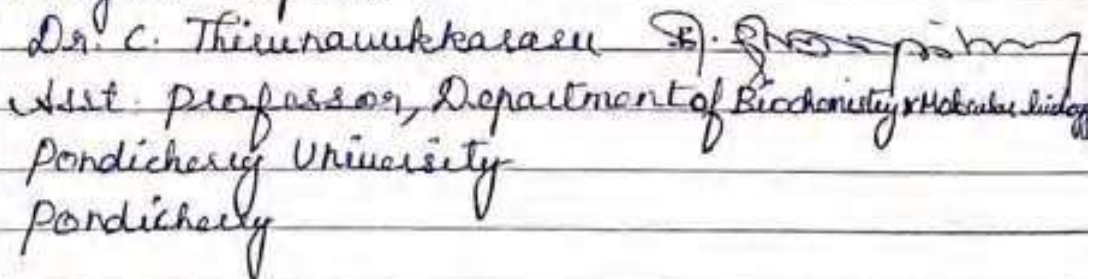 Dr. C. Thirunavukkarasu
Asst. professor, Department of Biochemistry & Molecular biology
Pondicherry University
Pondicherry